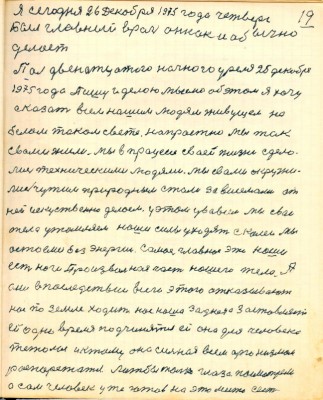 19
Я сегодня 26 Декобря 1975 года четверг
Был главный врач он как и обычно
делает
Пол двенатцатого ночного уремя 25 декобря
1975 года Пишу и делаю об этом Я хочу
сказать всем нашим людям живущем на
белом таком свете, напрастно мы так
с вами жили. мы в працесе своей жизне сдела-
лис техническими людями. мы с вами окружи-
лис чутим природным стали зависемами от
ней искуственно делаем. у этом
тело утомляем наши силы уходят с колеи мы
остаемся без энергии. Самое главное это наши
есть ноги Произвольная часть нашего тела. А
они в последствии всего этого отказывают
нас по земле ходить нас наша заставляет
её одно время подчинятся ей она для человека
тяжолая к тому она сильная всем организмом
распорежатся глаза посмотрели
а сам человек уже готов на это место сест